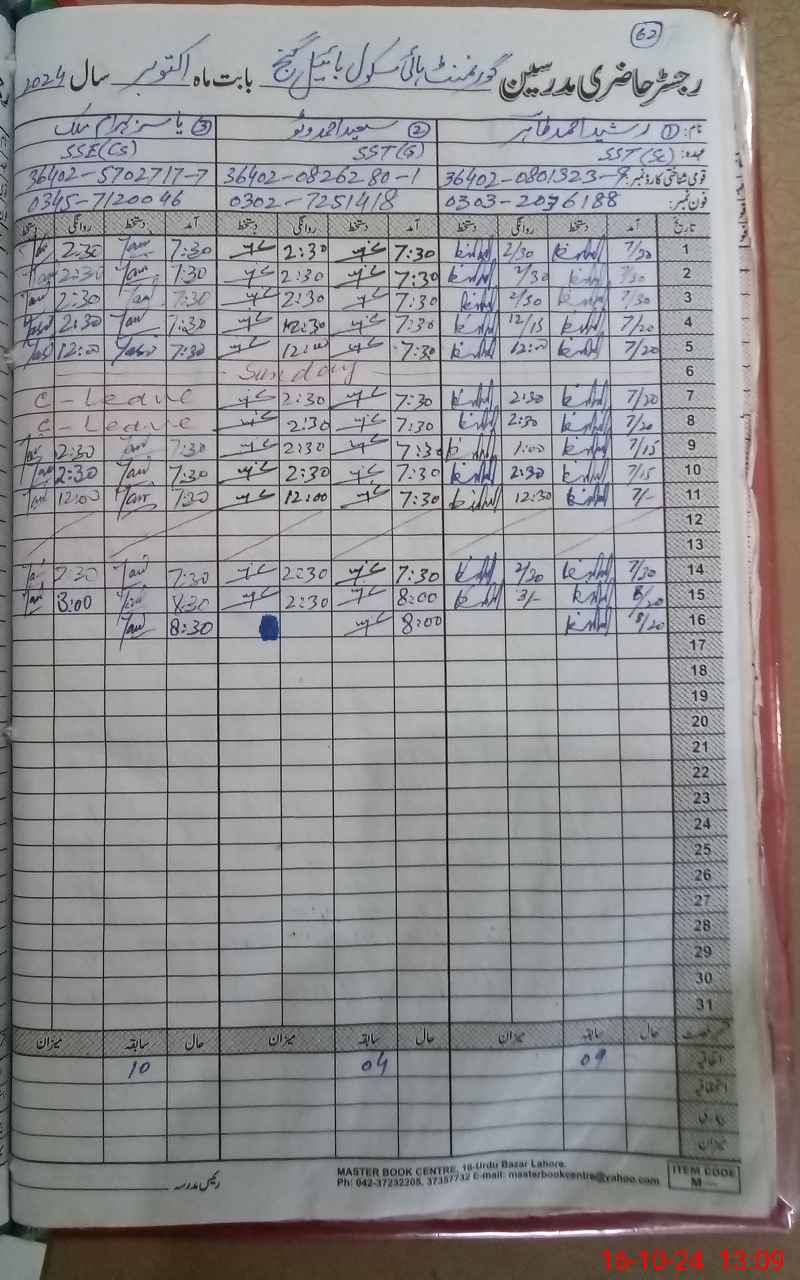 62
رجسٹر حاضری مدرسین گورنمنٹ ہائی سکول بائیل گنج بابت ماہ اکتوبر سال 2024
نام: ① رشید احمد طاہر ② سعید احمد وٹو ③ یاسر بہرام ملک
عہدہ: SST(Sc) SST(G) SSE(CS)
قومی شناختی کارڈ نمبر: 36402-0801323-9 36402-0826280-1 36402-5702717-7
فون نمبر: 0303-2076188 0302-7251418 0345-7120046
تاریخ آمد دستخط روانگی دستخط آمد دستخط روانگی دستخط آمد دستخط روانگی دستخط
1 7/20 2/30 7:30 2:30 7:30 2:30
2 7/30 2/30 7:30 2:30 7:30 2:30
3 7/30 2/30 7:30 2:30 7:30 2:30
4 7/20 12/15 7:30 12:30 7:30 2:30
5 7/20 12:00 7:30 12:00 7:30 12:00
6 Sunday
7 7/20 2:30 7:30 2:30 C-Leave
8 7/20 2:30 7:30 2:30 C-Leave
9 7/15 1:00 7:30 2:30 7:30 2:30
10 7/15 2:30 7:30 2:30 7:30 2:30
11 7/- 12:30 7:30 12:00 7:30 12:00
12
13
14 7/30 2/30 7:30 2:30 7:30 2:30
15 8/20 3/- 8:00 2:30 8:30 3:00
16 8/20 8:00 8:30
17
18
19
20
21
22
23
24
25
26
27
28
29
30
31
حال سابقہ میزان حال سابقہ میزان حال سابقہ میزان
اتفاقیہ 09 04 10
استحقاقیہ
بیماری
میزان
رئیس مدرسہ
MASTER BOOK CENTRE, 16-Urdu Bazar Lahore.
Ph: 042-37232205, 37357732 E-mail: masterbookcentre@yahoo.com
ITEM CODE
M
16-10-24 13:09